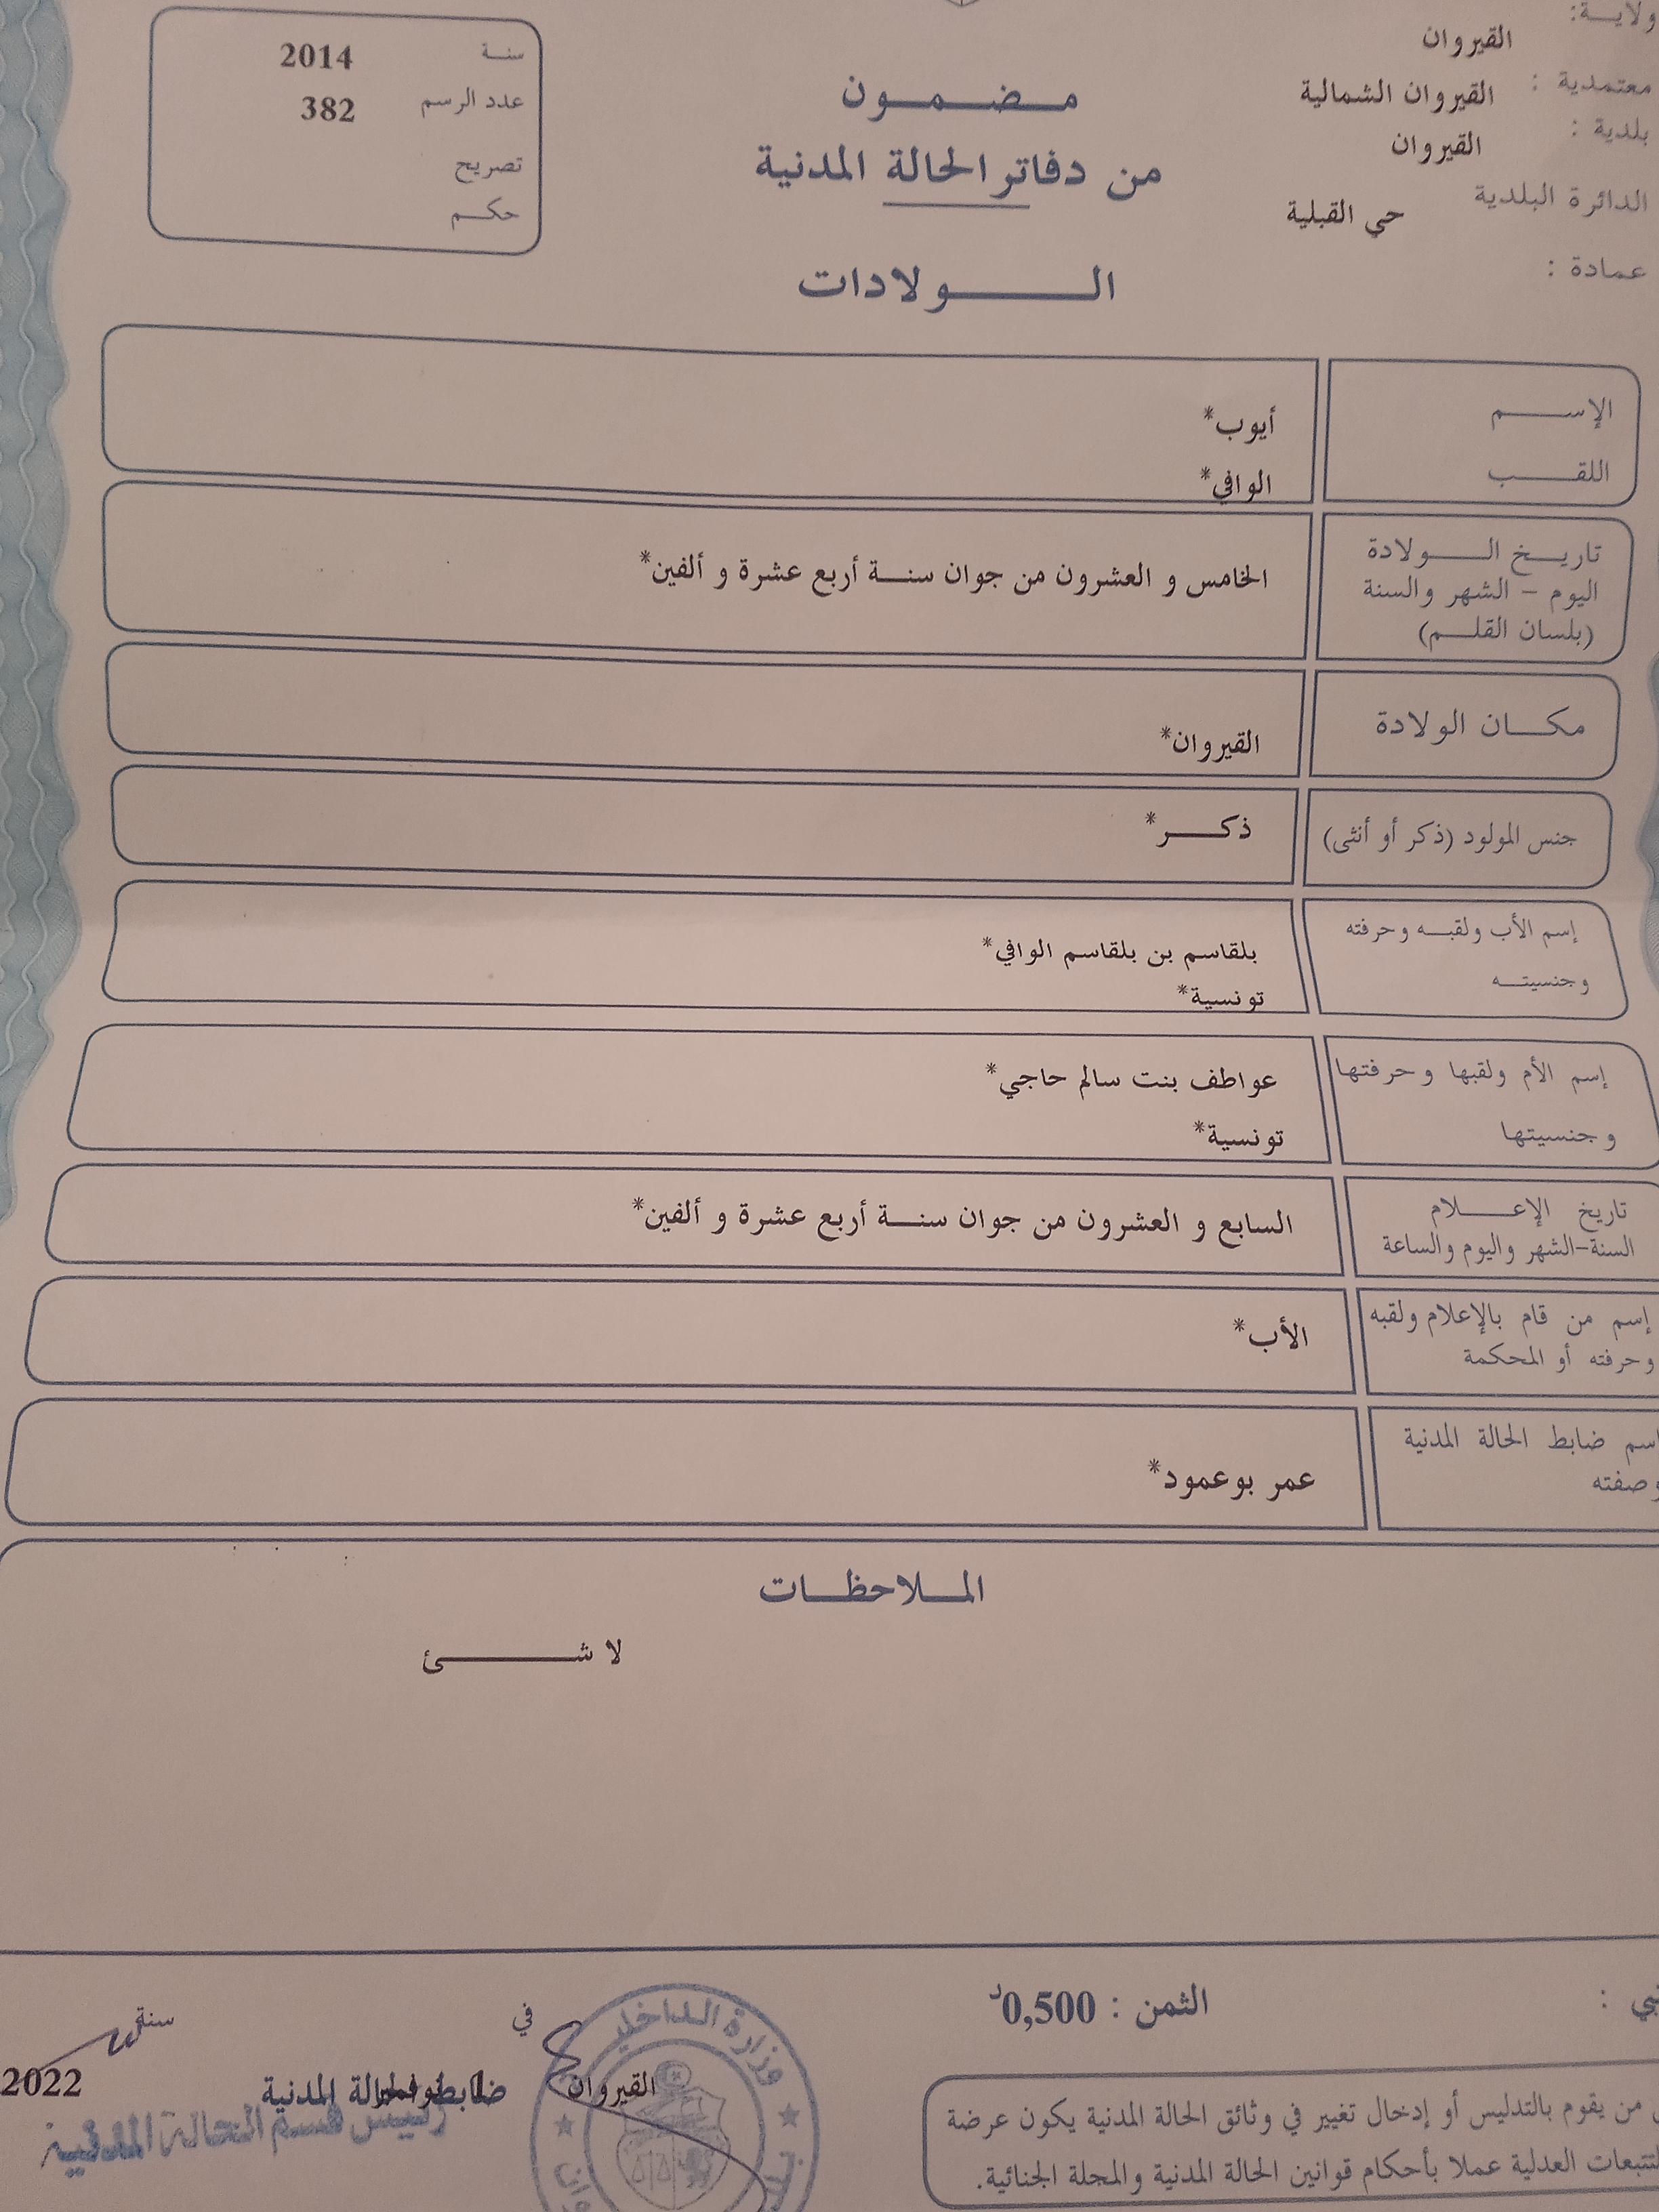 ولاية:
القيروان
معتمدية :
القيروان الشمالية
بلدية :
القيروان
الدائرة البلدية
حي القبلية
عمادة :
مضمون
من دفاتر الحالة المدنية
الولادات
سنة 2014
عدد الرسم 382
تصريح
حكم
الإسم
أيوب*
اللقب
الوافي*
تاريخ الولادة
اليوم - الشهر والسنة
(بلسان القلم)
الخامس و العشرون من جوان سنة أربع عشرة و ألفين*
مكان الولادة
القيروان*
جنس المولود (ذكر أو أنثى)
ذكر*
إسم الأب ولقبه وحرفته
وجنسيته
بلقاسم بن بلقاسم الوافي*
تونسية*
إسم الأم ولقبها وحرفتها
وجنسيتها
عواطف بنت سالم حاجي*
تونسية*
تاريخ الإعلام
السنة-الشهر واليوم والساعة
السابع و العشرون من جوان سنة أربع عشرة و ألفين*
إسم من قام بالإعلام ولقبه
وحرفته أو المحكمة
الأب*
إسم ضابط الحالة المدنية
وصفته
عمر بوعمود*
الملاحظات
لا شئ
الثمن : 0,500د
في
سنة
القيروان
2022
ضابط الحالة المدنية
رئيس قسم الحالة المدنية
وزارة الداخلية
من يقوم بالتدليس أو إدخال تغيير في وثائق الحالة المدنية يكون عرضة
للتتبعات العدلية عملا بأحكام قوانين الحالة المدنية والمجلة الجنائية.